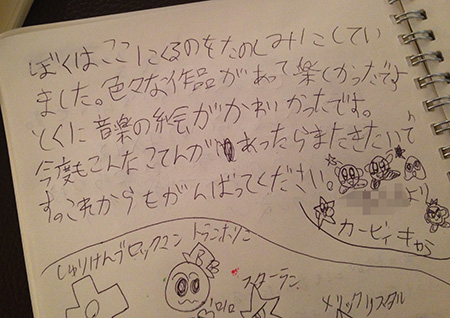 ぼくはここにくるのをたのしみにしてい
ました。色々な作品があって楽しかったでよ
とくに音楽の絵がかわいかったです。
今度もこんなこてんがあったらまたきたいて
す。これからもがんばってください。
より
カービィキャラ
しゅりけんブロックマン
スターマン
メリックリスタル